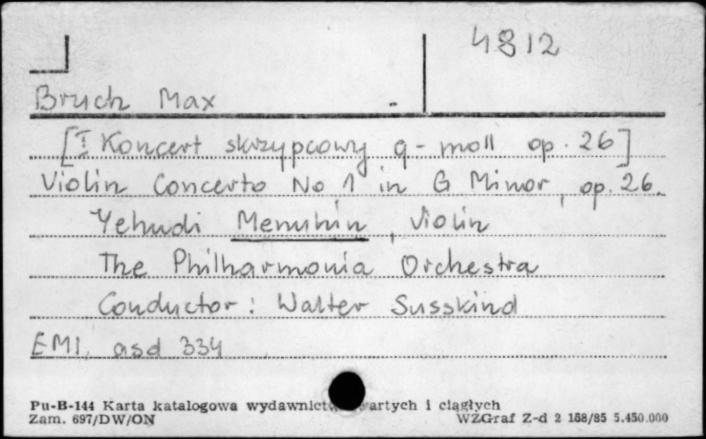 4812
Bruch Max -
[I Koncert skrzypcowy g-moll op. 26]
Violin Concerto No 1 in G Minor, op. 26.
Yehudi Menuhin, Violin
The Philharmonia Orchestra
Conductor: Walter Susskind
EMI, asd 334
Pu-B-144 Karta katalogowa wydawnictw artych i ciągłych
Zam. 697/DW/ON WZGraf Z-d 2 158/85 5.450.000